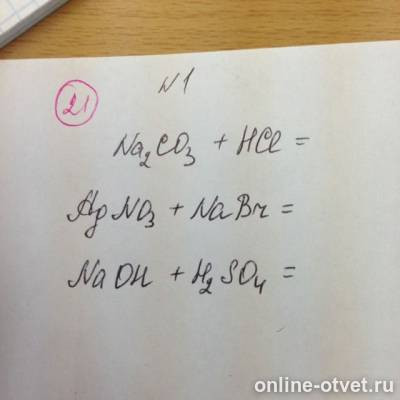 N1
21
Na₂CO₃ + HCl =
AgNO₃ + NaBr =
NaOH + H₂SO₄ =
online-otvet.ru